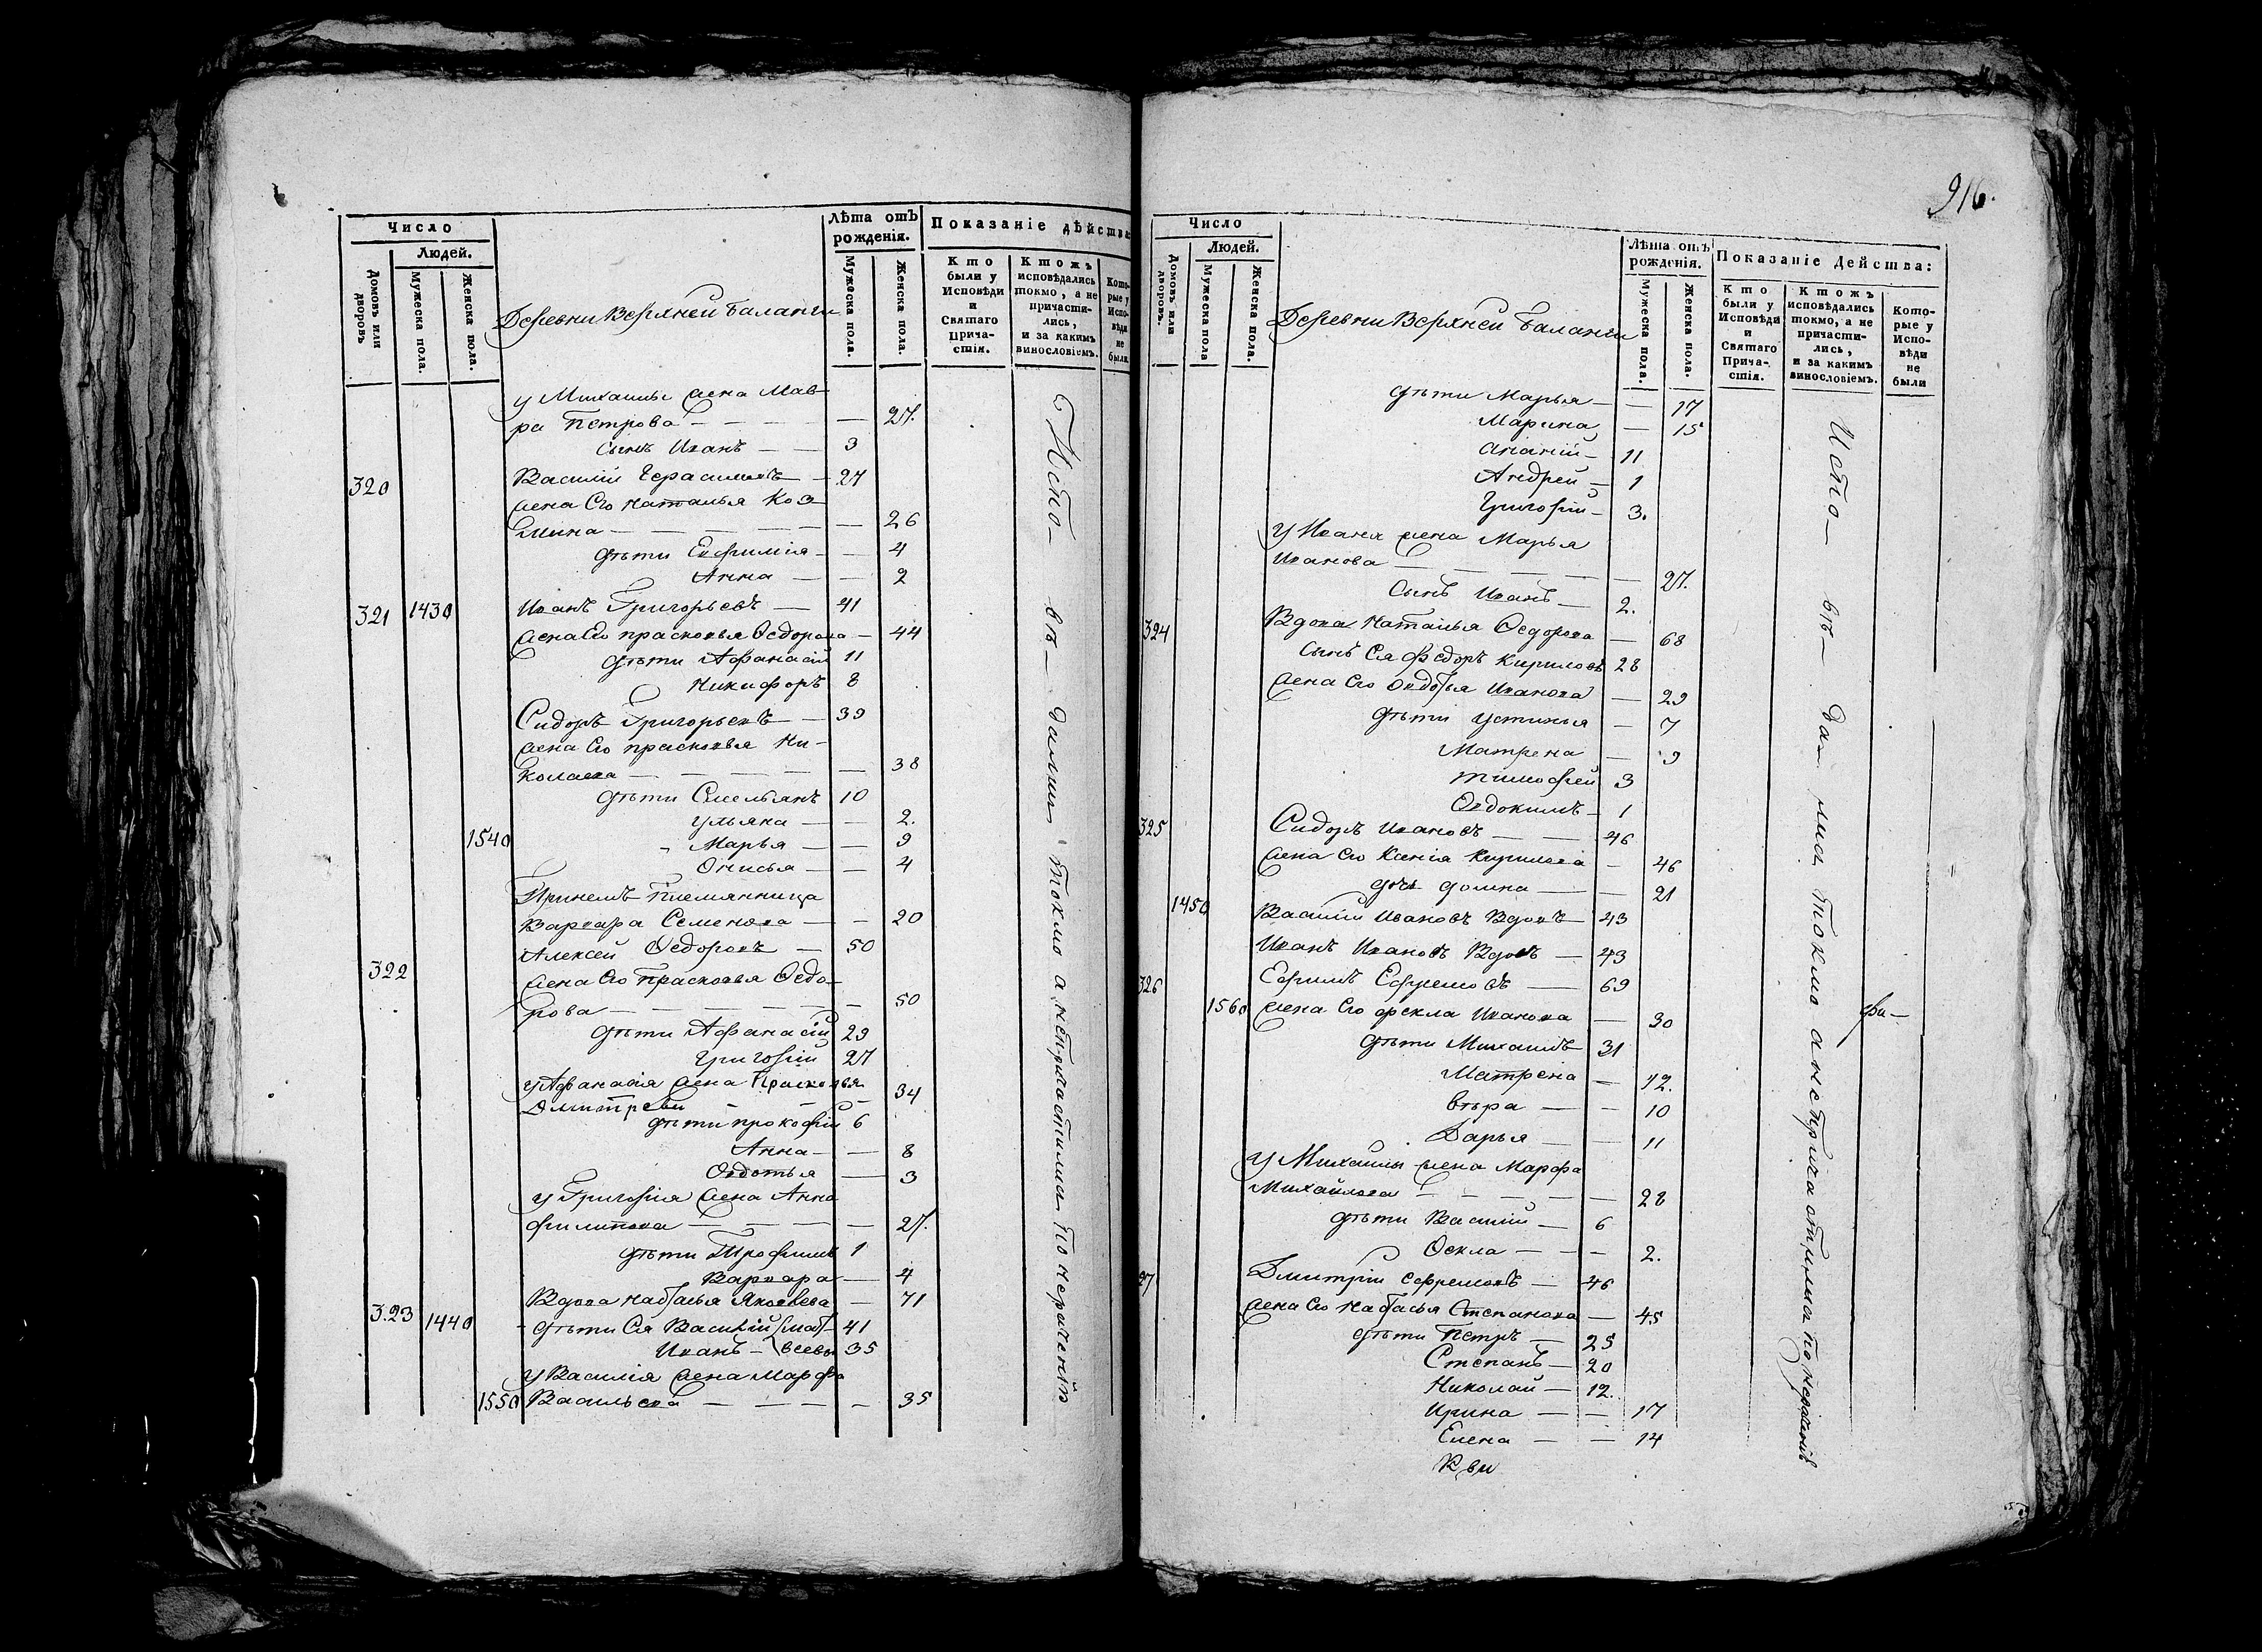 Число
Людей.
Домовъ или дворовъ
Мужеска пола.
Женска пола.
Деревни Верхней Баланги
Лѣта отъ рожденія.
Мужеска пола.
Женска пола.
Показаніе дѣйства
Кто были у Исповѣди и Святаго Причастія.
Ктожъ исповѣдались токмо, а не причастились, и за какимъ винословіемъ.
Которые у Исповѣди не были
у Михаилы жена Мав-
ра Петрова — — 27.
сынъ Иванъ — 3
320 Василій Герасимовъ — 27
жена Его Наталья Коз-
мина — — 26
дѣти Евфимія — 4
Анна — 2
321 1430 Иванъ Григорьевъ — 41
жена Его прасковья Ѳедорова — 44
дѣти Афанасій 11
Никифоръ 8
Сидоръ Григорьевъ — 39
жена Его прасковья Ни-
колаева — — 38
дѣти Емельянъ 10
Ульяна — 2.
1540 Марья — 9
Онисья — 4
Племянница
Варвара Семенова — 20
322 Алексей Ѳедоровъ — 50
жена Его Прасковья Ѳедо-
рова — — 50
дѣти Афанасій 29
Григорій 27
у Афанасія жена Прасковья
Дмитрева — 34
дѣти прокофій 6
Анна — 8
Овдотья — 3
у Григорія жена Анна
филипова — — 27.
дѣти Трофимъ 1
Варвара — 4
323 1440 Вдова настасья Яковлева — 71
дѣти Ея Василій 41
Иванъ — 35
у Василія жена Марфа
1550 Васильева — — 35
Испо- вѣ- дались токмо а непричастились по нераченію
916.
Число
Людей.
Домовъ или дворовъ.
Мужеска пола
Женска пола.
Деревни Верхней Баланги
Лѣта отъ рожденія.
Мужеска пола.
Женска пола.
Показаніе Действа:
Кто были у Исповѣди и Святаго Причастія.
Ктожъ исповѣдались токмо, а не причастились, и за какимъ винословіемъ.
Которые у Исповѣди не были
дѣти Марья — 17
Марина — 15
Ананій — 11
Андрей — 1
Григорій — 3.
у Ивана жена Марья
Иванова — — 27.
Сынъ Иванъ — 2.
324 Вдова Наталья Ѳедорова — 68
сынъ Ея Федоръ Кириловъ 28
жена Его Овдотья Иванова — 29
дѣти устинья — 7
Матрена — 9
Тимофей 3
Овдокимъ — 1
325 Сидоръ Ивановъ — 46
жена Его Ксенія Кирилова — 46
дочь домна — 21
1450 Василій Ивановъ Вдовъ — 43
Иванъ Ивановъ Вдовъ — 43
326 Ефимъ Ефремовъ — 69
1560 жена Его фекла Иванова — 30
дѣти Михаилъ 31
Матрена — 12.
Вѣра — 10
Дарья — 11
у Михаилы жена Марфа
Михайлова — — 28
дѣти Василій — 6
Ѳекла — 2.
27 Дмитрій Ефремовъ — 46
жена Его настасья Степанова — 45
дѣти Петръ — 25
Степанъ — 20
Николай — 12.
Ирина — 17
Елена — 14
Испо- вѣ- да- лись токмо а непричастились по нераченію